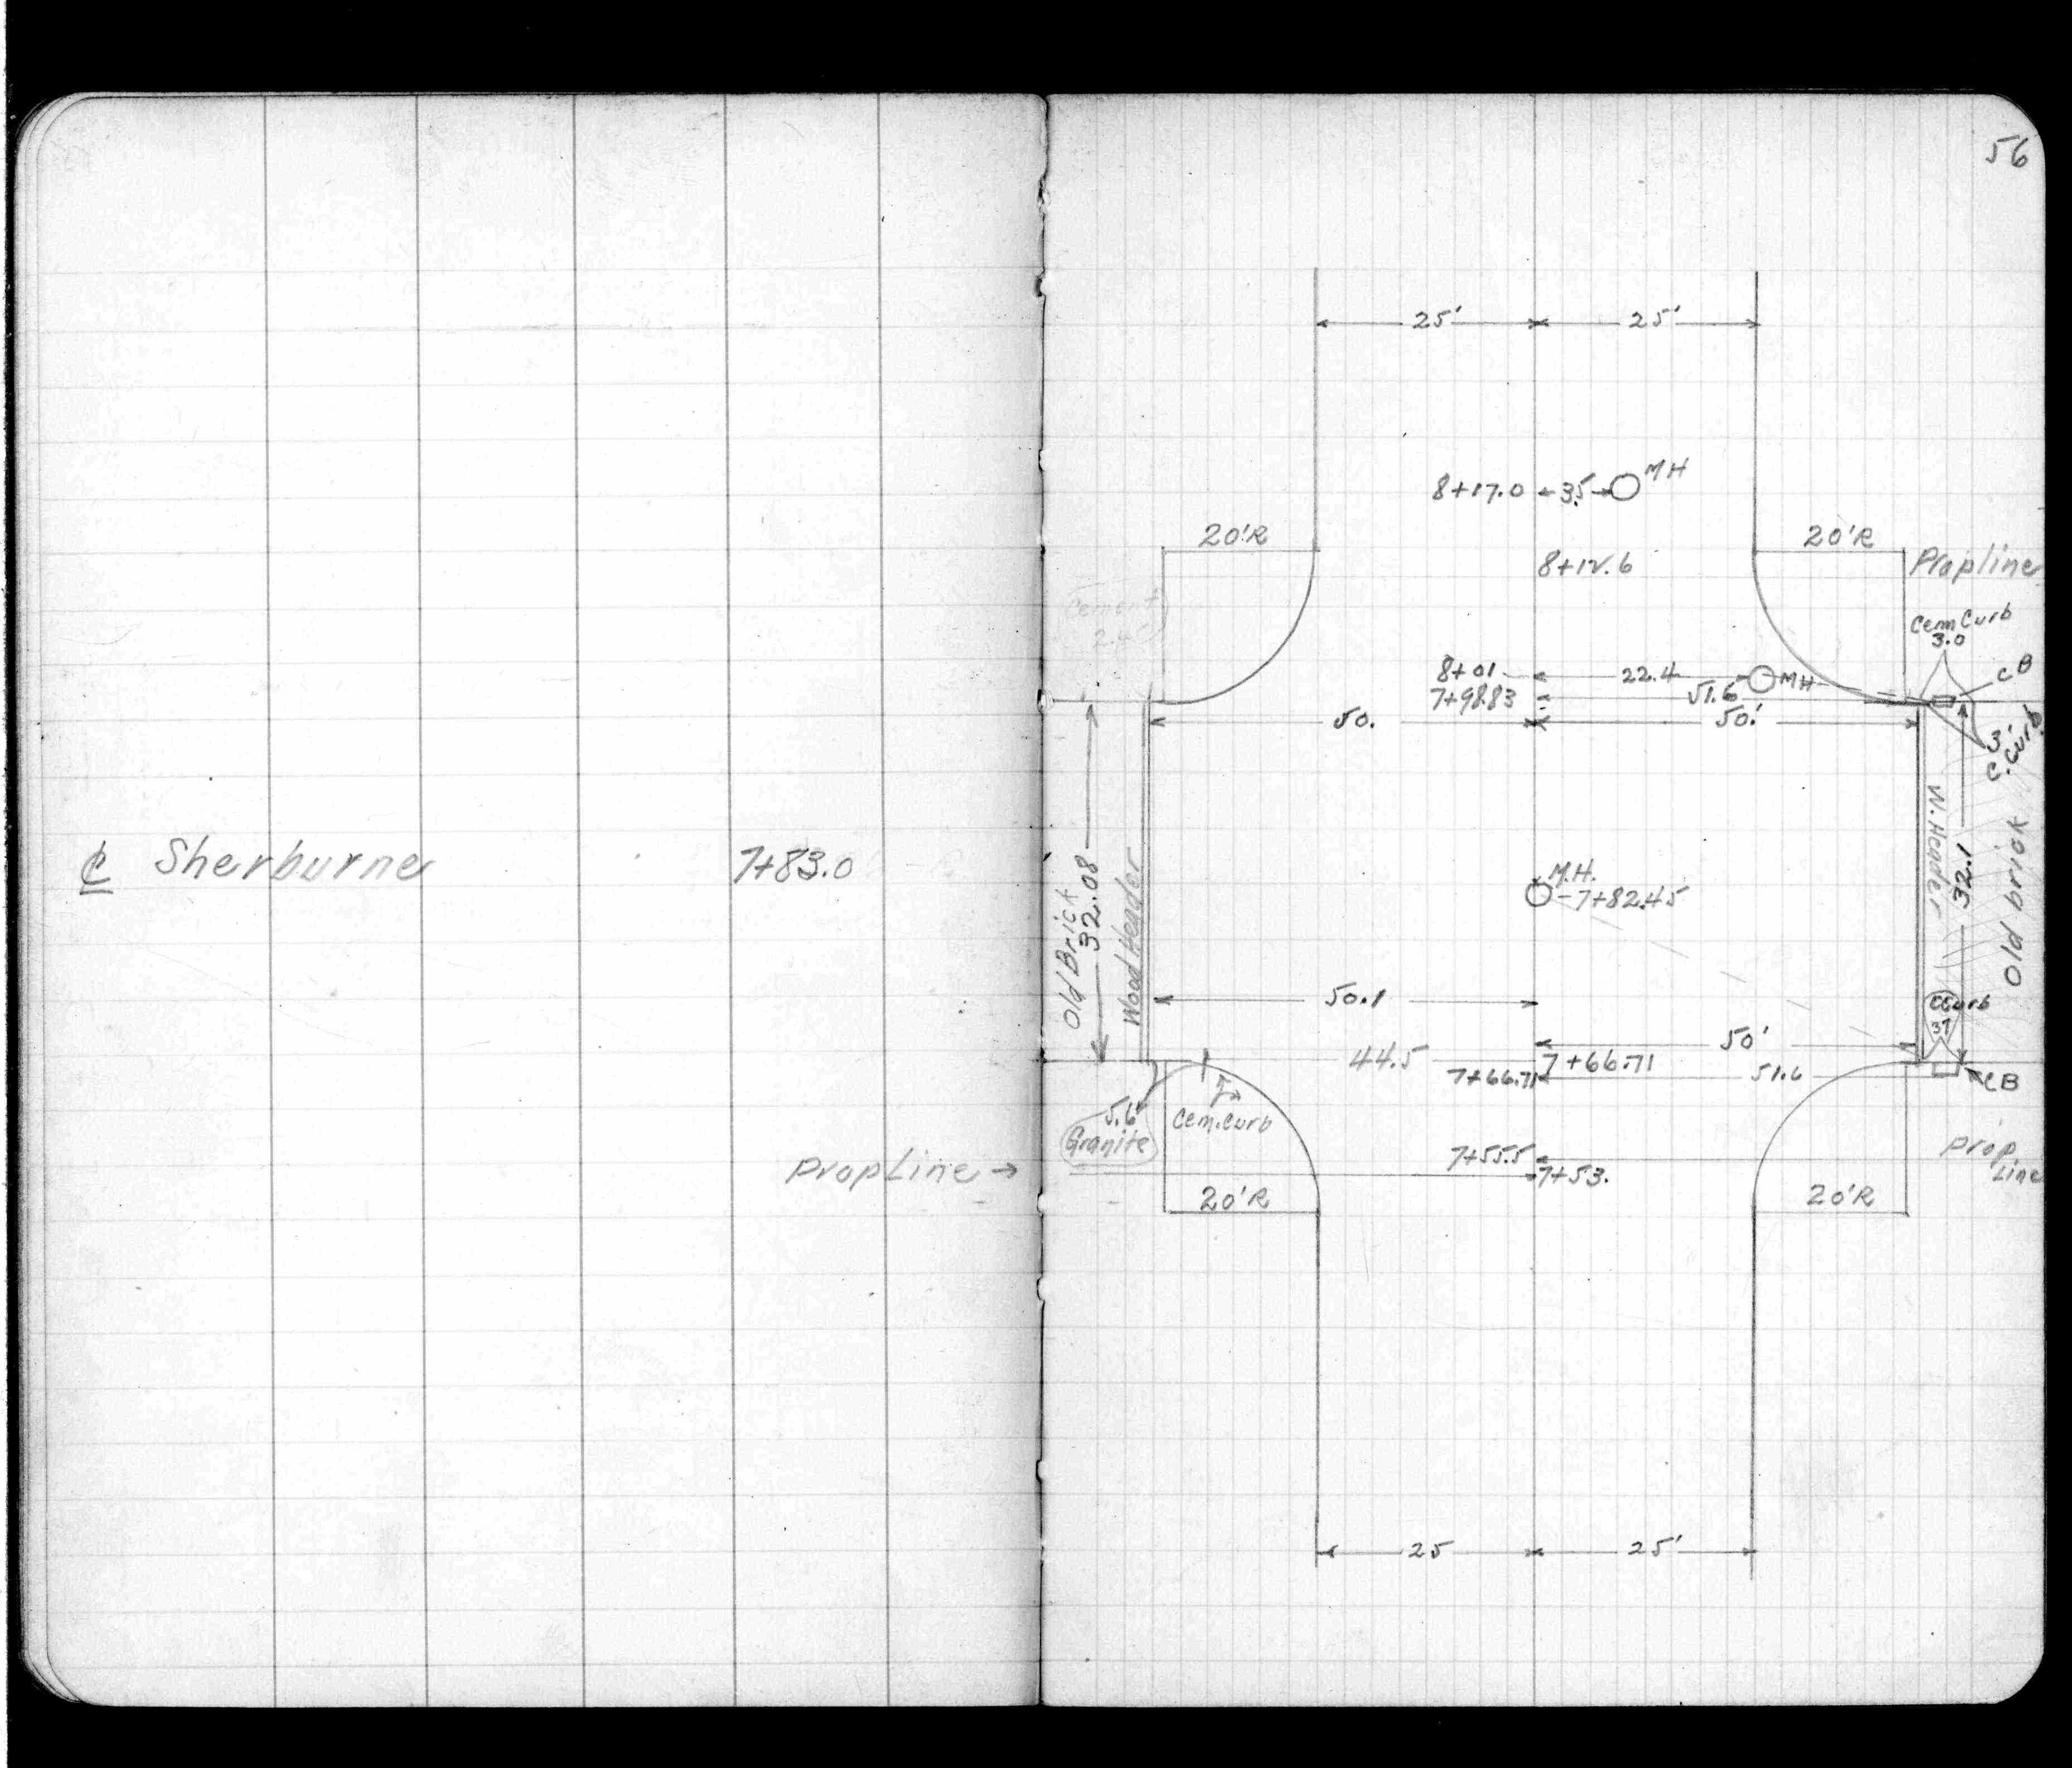 56
25' 25'
8+17.0 3.5 MH
20'R 20'R
8+12.6 Prop line
Cement
Cem Curb
3.0
8+01 22.4 MH CB
7+98.83 51.6
50. 50.'
3'
C. Curb
₵ Sherburne 7+83.0
Old Brick
32.08
Wood Header
M.H.
7+82.45
W. Header
32.1
Old brick
50.1
C Curb
37
50'
44.5 7+66.71
7+66.71 51.6 CB
5.6'
Granite
Cem. Curb
Prop Line → 7+55.5 Prop.
Line
7+53.
20'R 20'R
25 25'